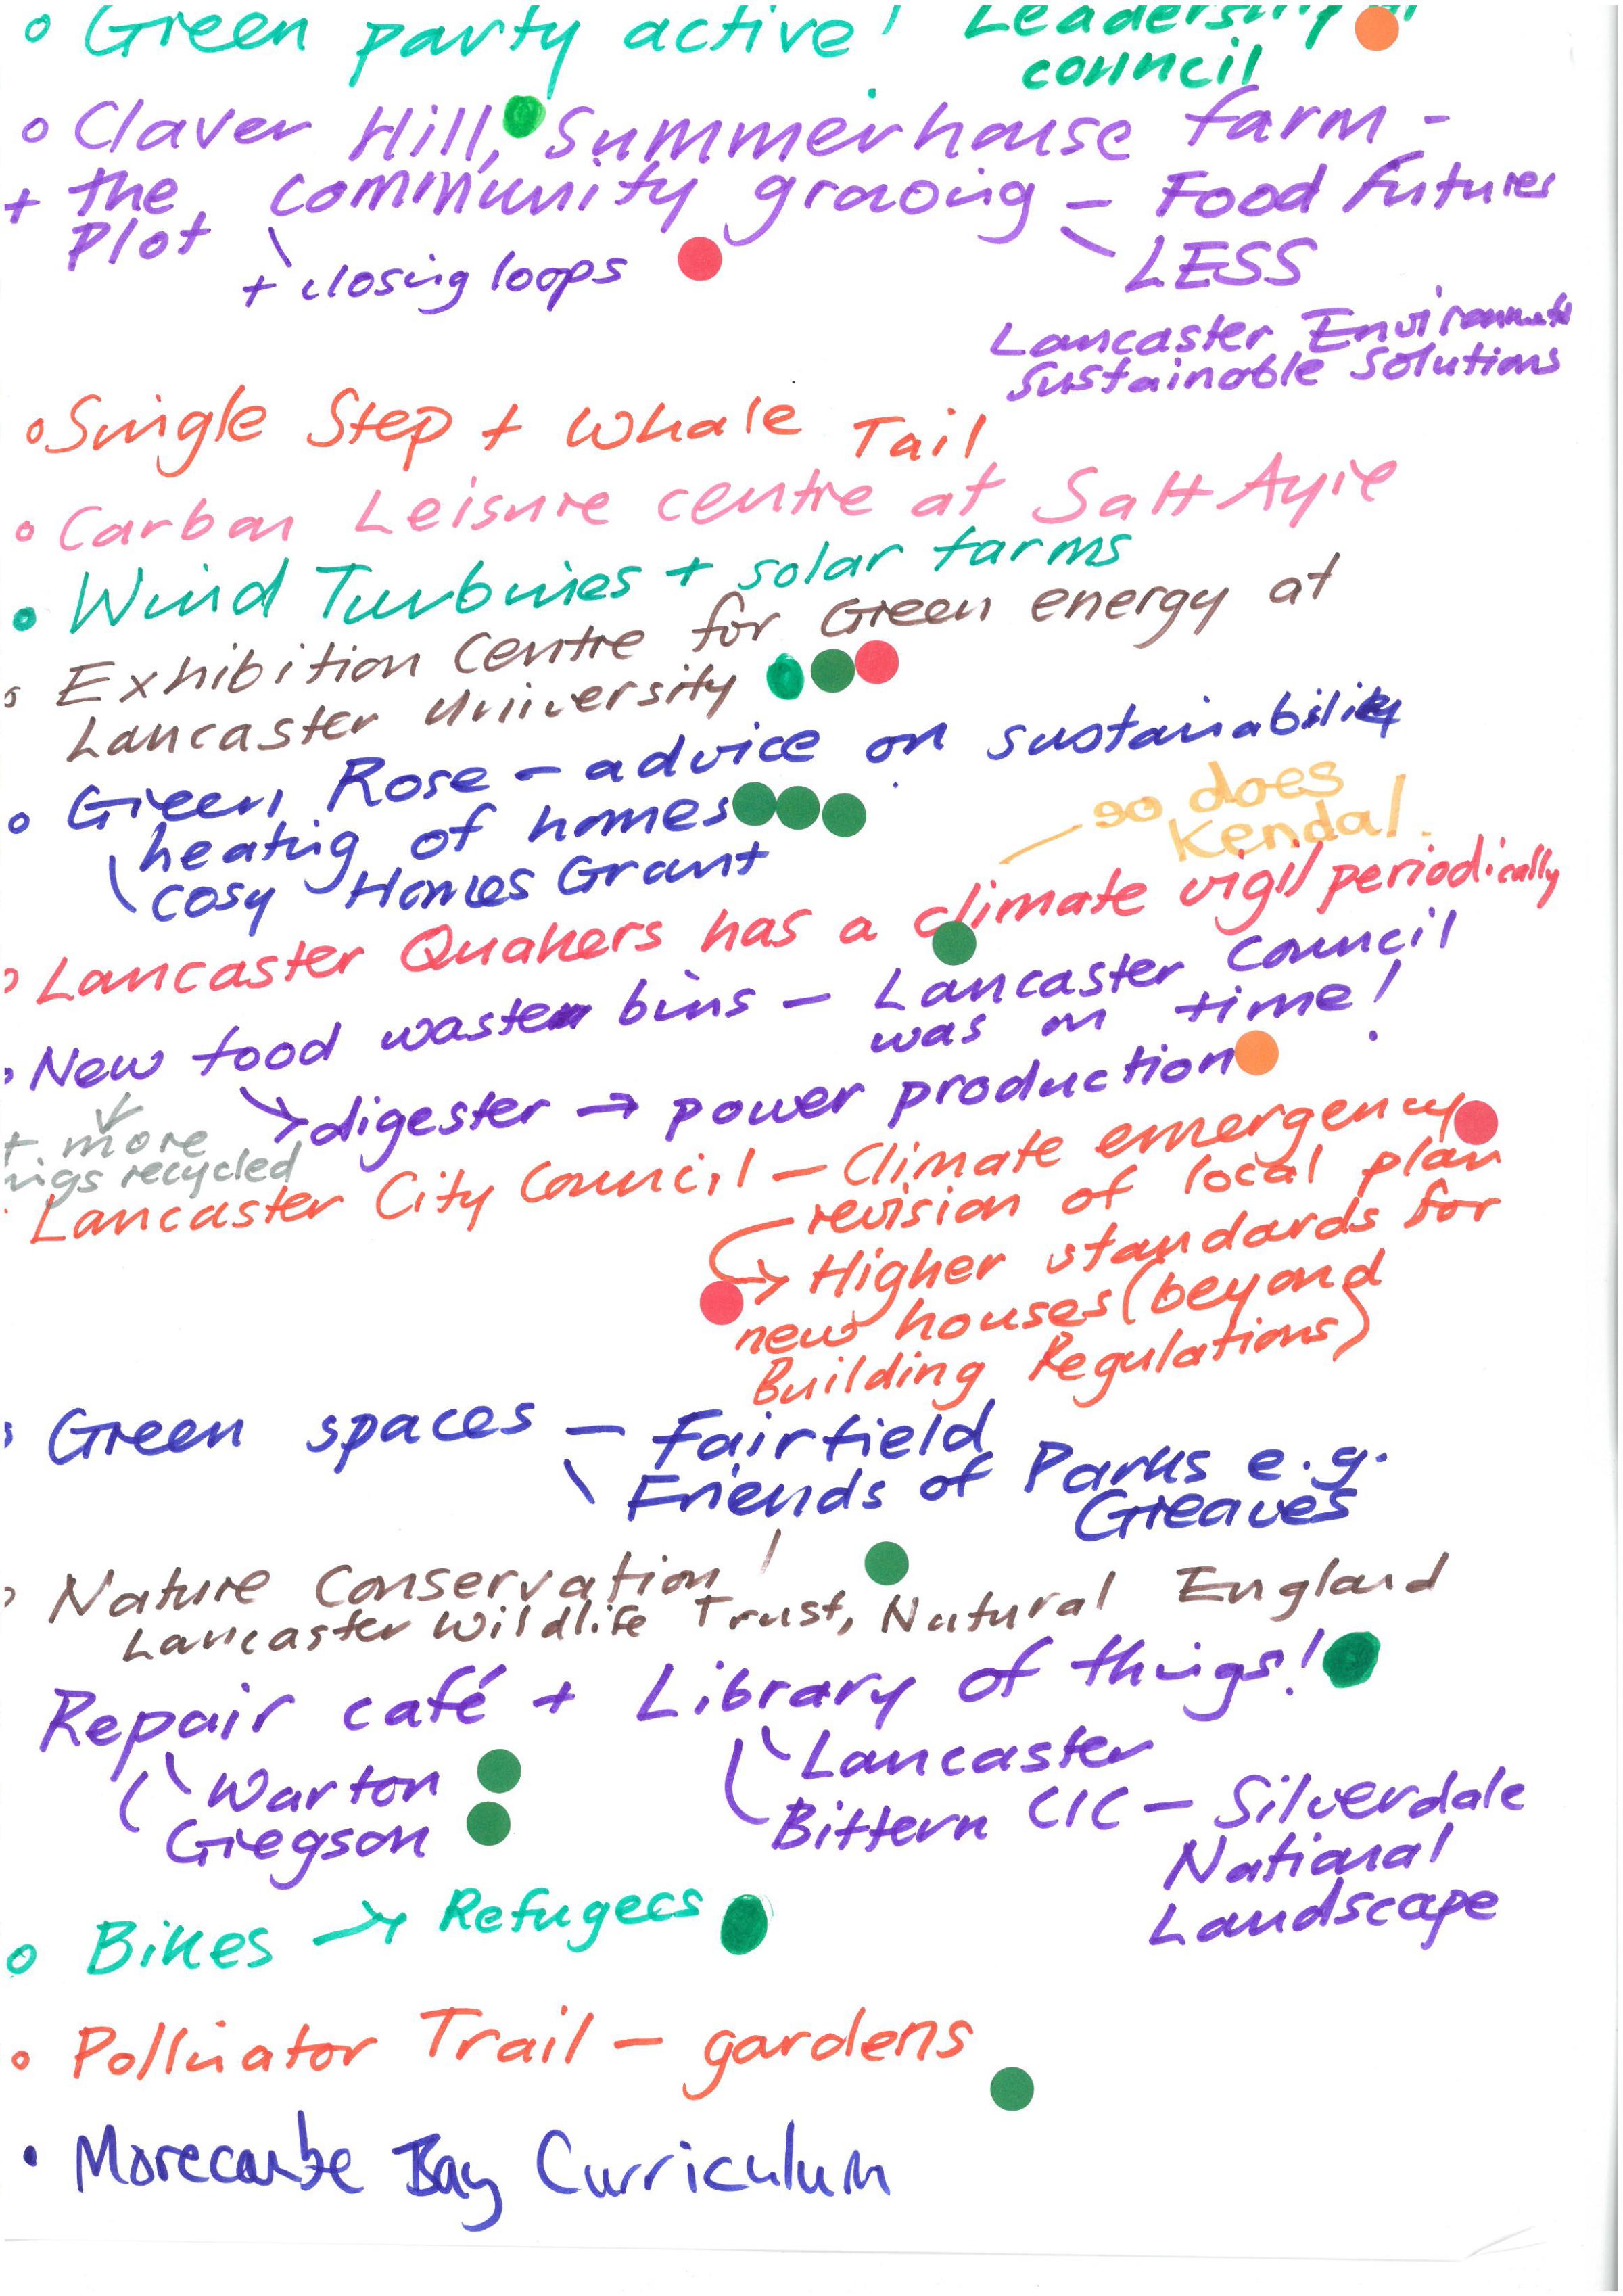 Green party active! Leadership
council
Claver Hill, Summerhouse farm -
+ the community graoing - Food futures
Plot
LESS
+ closing loops
Lancaster
Sustainable Solutions
Single Step + Whale Tail
Carbon Leisure centre at Salt Ayre
Wind Turbines + solar farms
Exhibition Centre for Green energy at
Lancaster University
Green Rose - advice on sustainability
heating of homes
cosy Homes Grant
so does
Kendal.
Lancaster Quakers has a climate vigil periodically
New food waste bins - Lancaster Council
was on time!
digester → power production
+ more
recycled
Lancaster City Council - Climate emergency
revision of local plan
→ Higher standards for
new houses (beyond
Building Regulations)
Green spaces - Fairfield
Friends of Parks e.g.
Greaves
Nature Conservation!
Lancaster Wildlife Trust, Natural England
Repair café + Library of things!
Warton
Gregson
Lancaster
Bittern CIC - Silverdale
National
Landscape
Bikes → Refugees
Pollinator Trail - gardens
Morecambe Bay Curriculum